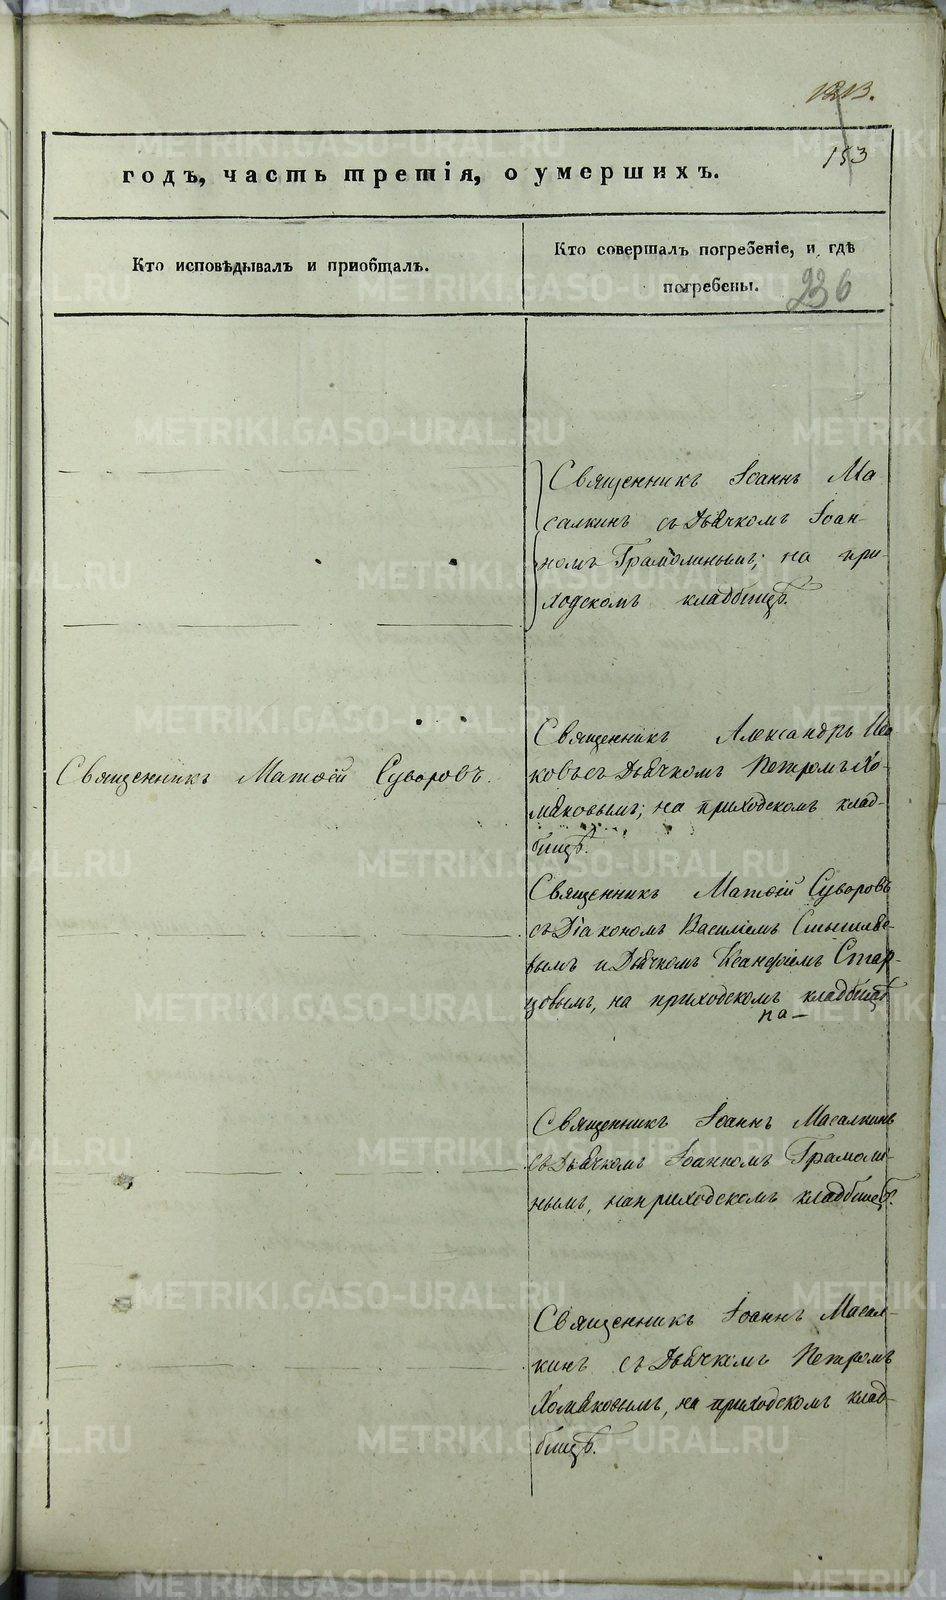 1213.
153
годъ, часть третія, о умершихъ.
Кто исповѣдывалъ и пріобщалъ.
Кто совершалъ погребеніе, и гдѣ
погребены.
236
Священникъ Іоаннъ Ма
салкинъ съ Дьячкомъ Іоан-
номъ Грамолинымъ; на при-
ходскомъ кладбищѣ.
Священникъ Матѳей Суворовъ.
Священникъ Александръ Ива
ковъ съ Дьячкомъ Петромъ Хо-
мяковымъ; на приходскомъ клад-
бищѣ.
Священникъ Матѳей Суворовъ
съ Діакономъ Василіемъ
вымъ и Дьячкомъ Ксанфіемъ Стар-
цовымъ, на приходскомъ кладбищѣ
на
Священникъ Іоаннъ Масалкинъ
съ Дьячкомъ Іоанномъ Грамоли-
нымъ, на приходскомъ кладбищѣ.
Священникъ Іоаннъ Масал-
кинъ съ Дьячкомъ Петромъ
Хомяковымъ, на приходскомъ клад-
бищѣ.
METRIKI.GASO-URAL.RU